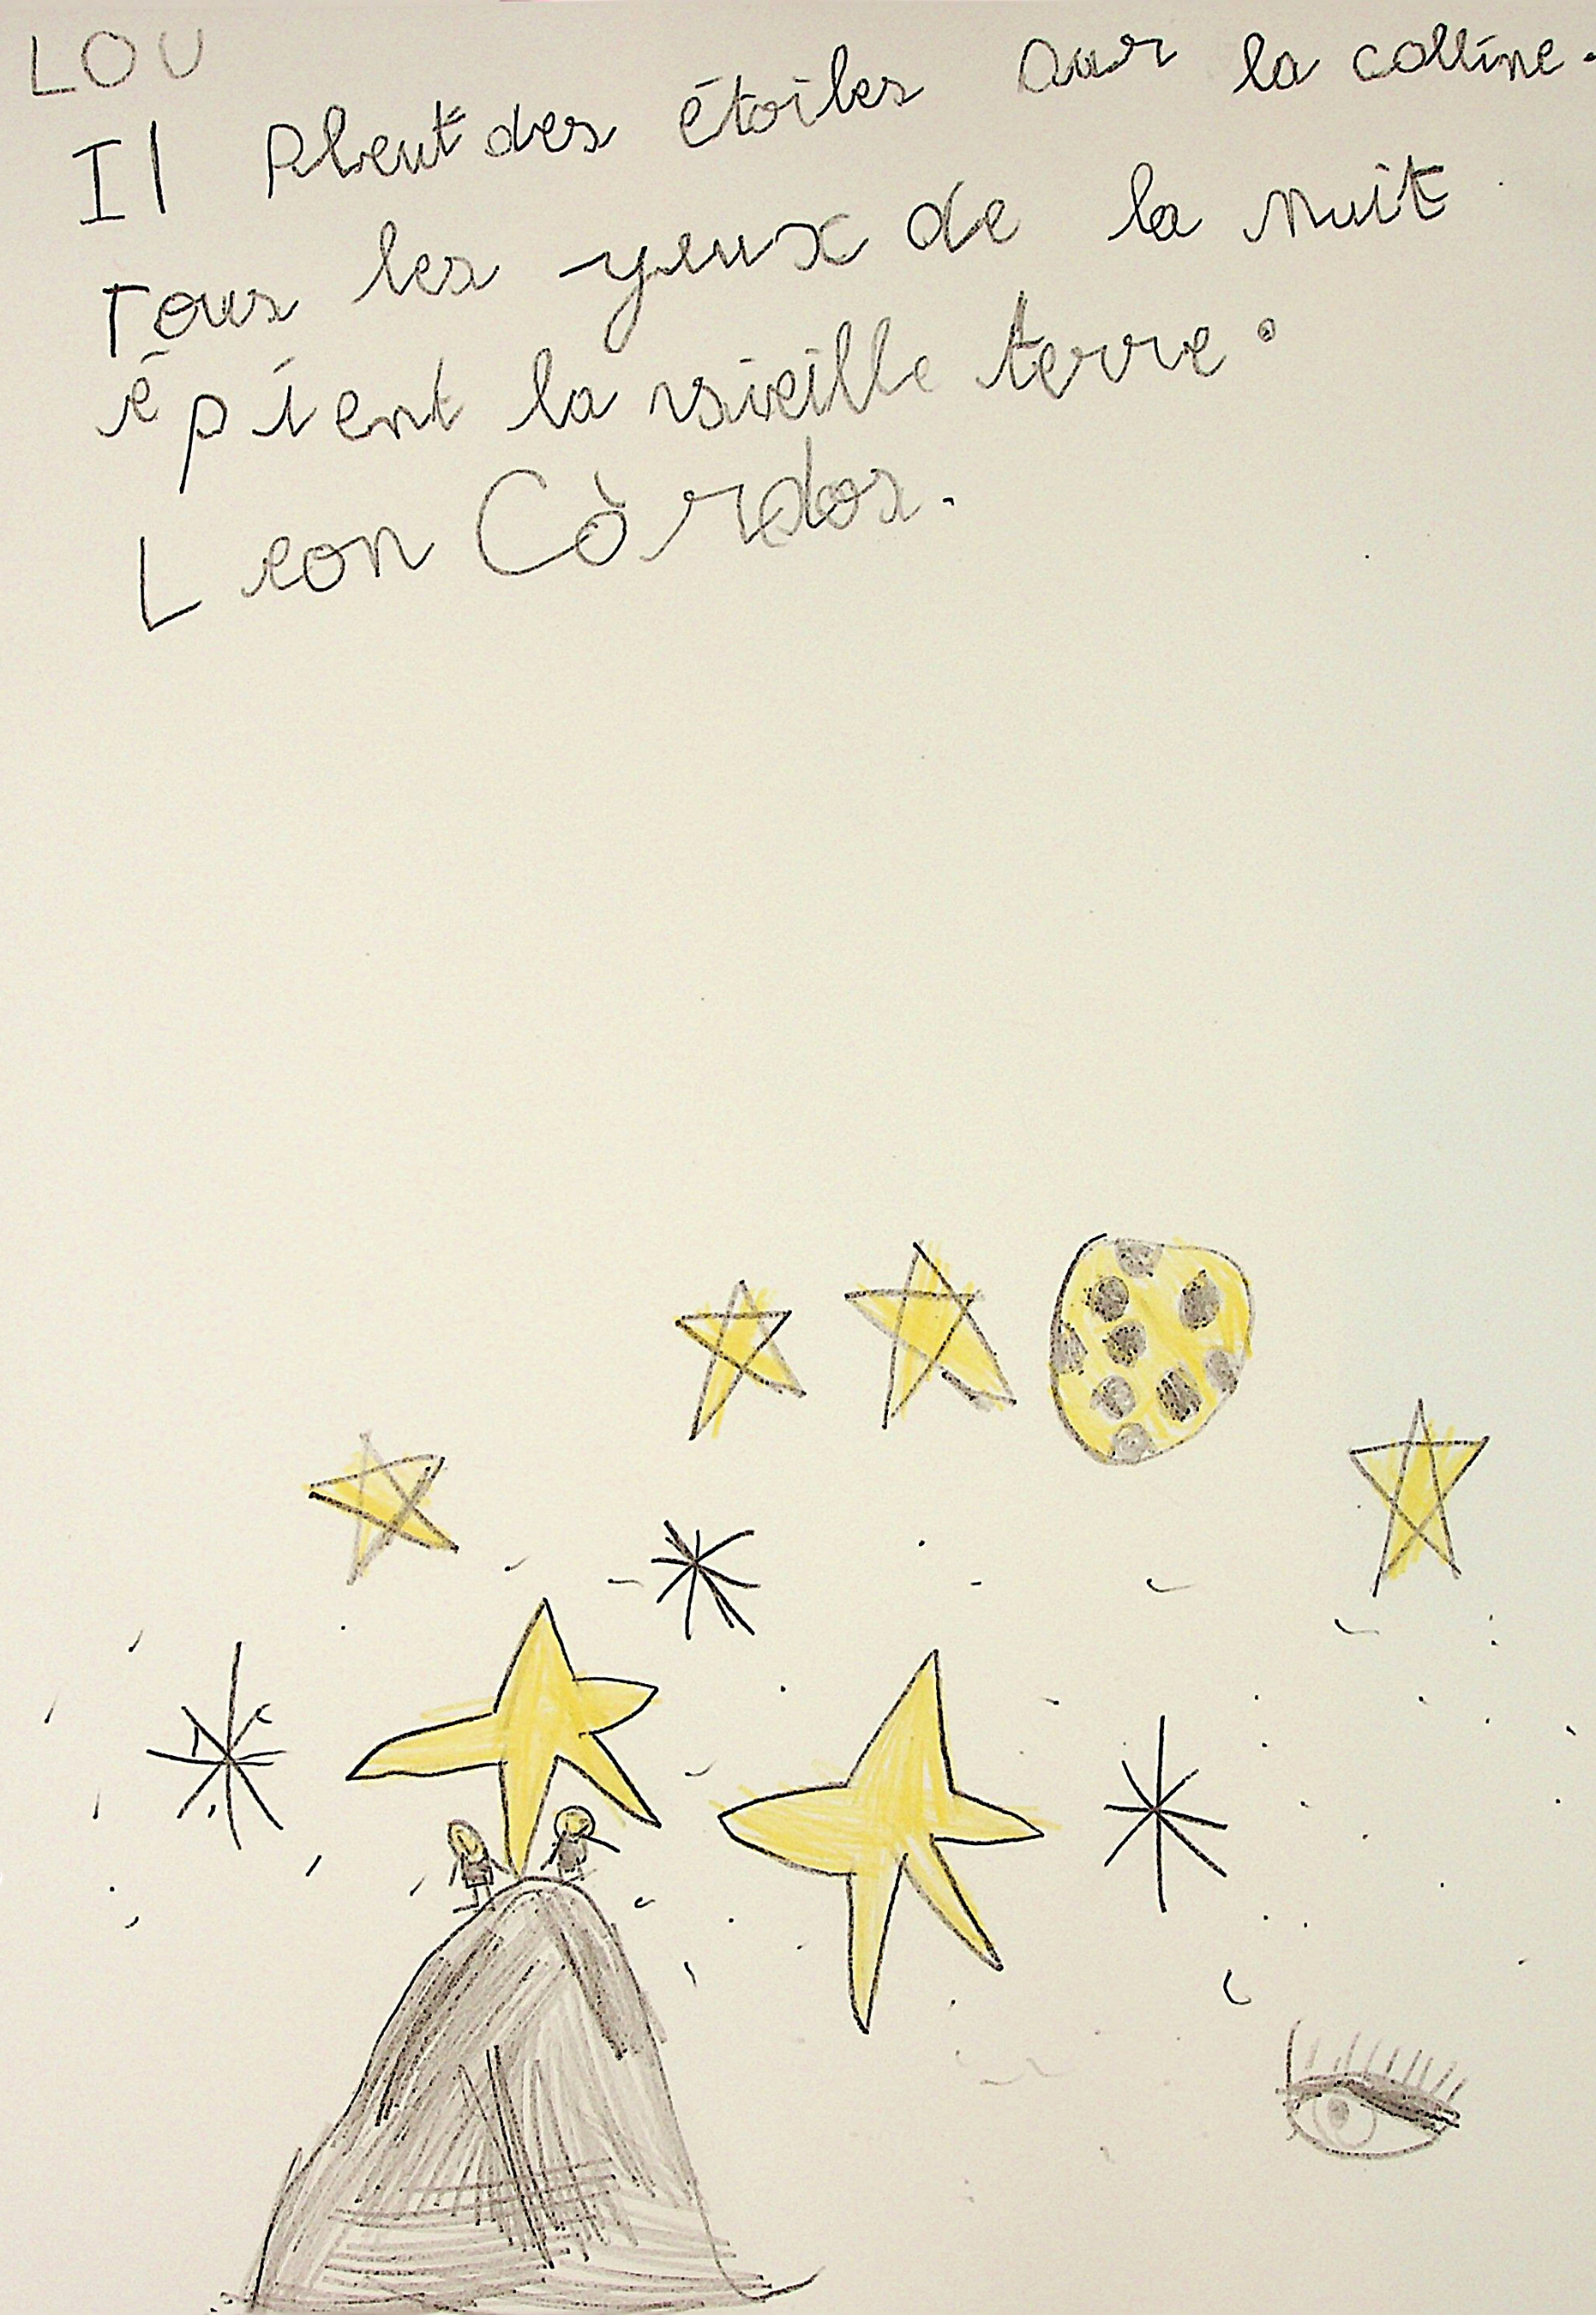 LOU
Il pleut des étoiles sur la colline.
Tous les yeux de la nuit
épient la vieille terre.
Leon Còrdos.